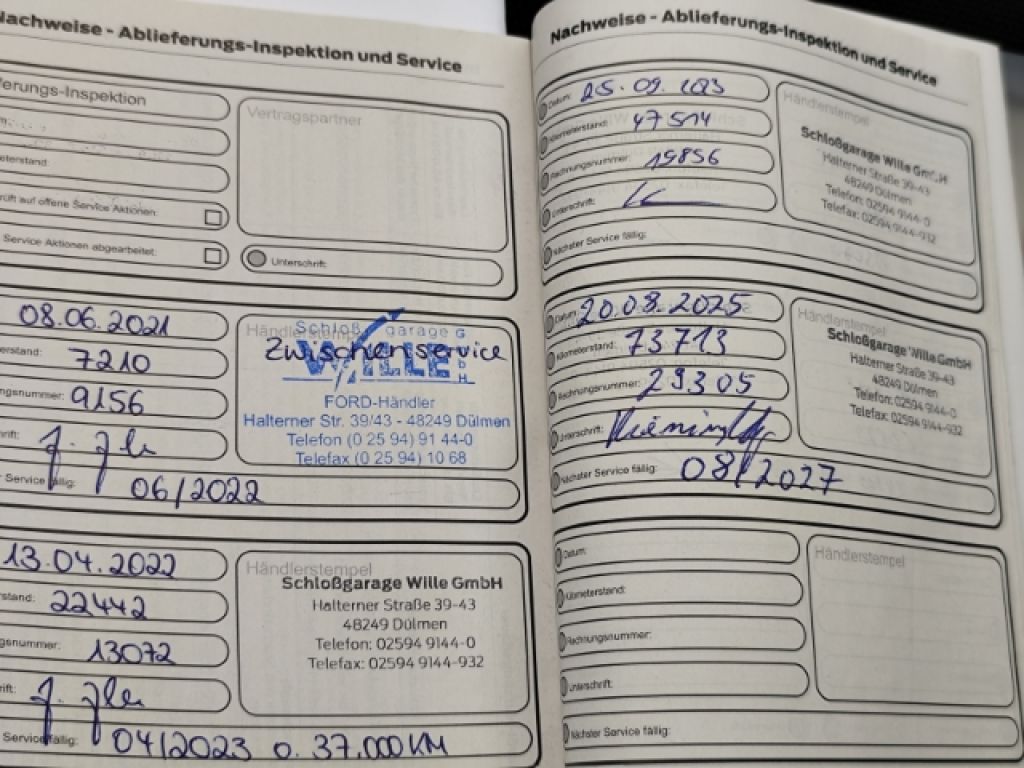 Nachweise - Ablieferungs-Inspektion und Service
ferungs-Inspektion
Vertragspartner
eterstand:
rüft auf offene Service Aktionen:
Service Aktionen abgearbeitet:
Unterschrift:
08.06.2021
erstand: 7210
ngsnummer: 9156
hrift:
Service fällig: 06/2022
Händlerstempel
Schloß garage G
Zwischenservice
WILLE b
H
FORD-Händler
Halterner Str. 39/43 - 48249 Dülmen
Telefon (0 25 94) 91 44-0
Telefax (0 25 94) 10 68
13.04.2022
stand: 22442
gsnummer: 13072
rift:
Service fällig: 04/2023 o. 37.000 KM
Händlerstempel
Schloßgarage Wille GmbH
Halterner Straße 39-43
48249 Dülmen
Telefon: 02594 9144-0
Telefax: 02594 9144-932
Nachweise - Ablieferungs-Inspektion und Service
Datum: 25.09.2023
Kilometerstand: 47514
Rechnungsnummer: 19856
Unterschrift:
Nächster Service fällig:
Händlerstempel
Schloßgarage Wille GmbH
Halterner Straße 39-43
48249 Dülmen
Telefon: 02594 9144-0
Telefax: 02594 9144-932
Datum: 20.08.2025
Kilometerstand: 73713
Rechnungsnummer: 29305
Unterschrift:
Nächster Service fällig: 08/2027
Händlerstempel
Schloßgarage Wille GmbH
Halterner Straße 39-43
48249 Dülmen
Telefon: 02594 9144-0
Telefax: 02594 9144-932
Datum:
Kilometerstand:
Rechnungsnummer:
Unterschrift:
Nächster Service fällig:
Händlerstempel